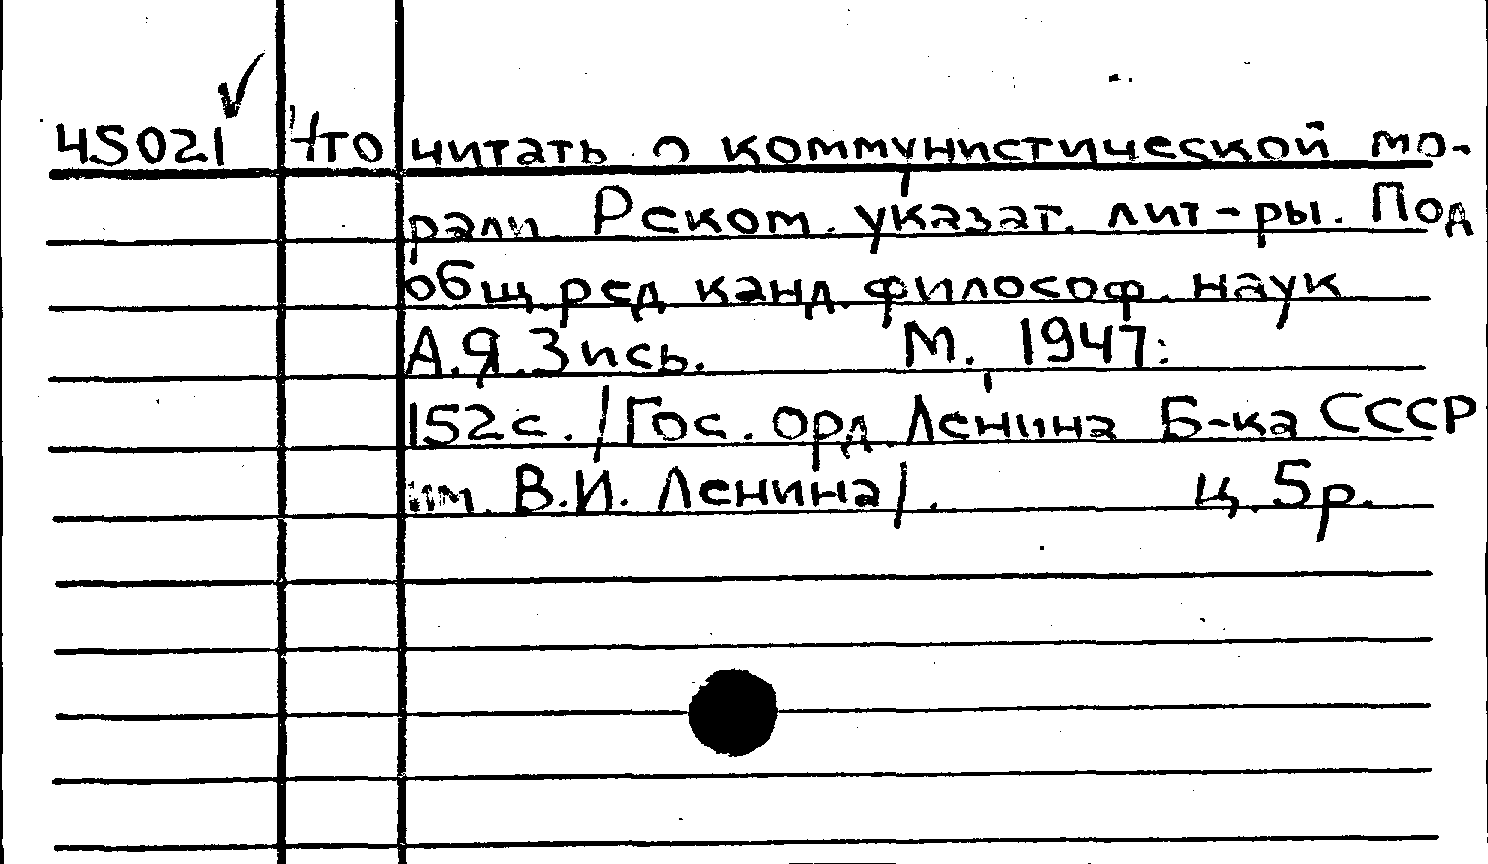 45021 Что читать о коммунистической мо-
рали. Реком. указат. лит-ры. Под
общ. ред. канд. философ. наук
А.Я.Зись. М. 1947.
152с. /Гос. орд. Ленина Б-ка СССР
им. В.И. Ленина/. Ц. 5р.